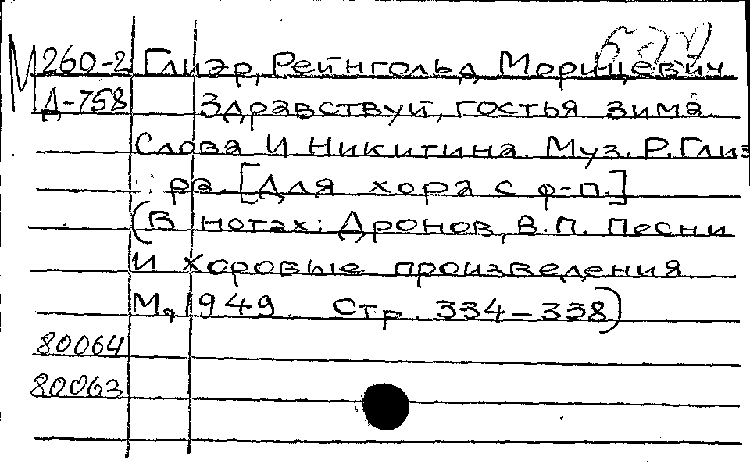 М 260-2 Глиэр, Рейнгольд Морицевич
Д-758 Здравствуй, гостья зима
Слова И Никитина. Муз. Р. Глиэ
ра. [Для хора с ф-п.]
(В нотах: Дронов, В.П. Песни
и хоровые произведения
М, 1949. Стр. 334-338)
80064
80063